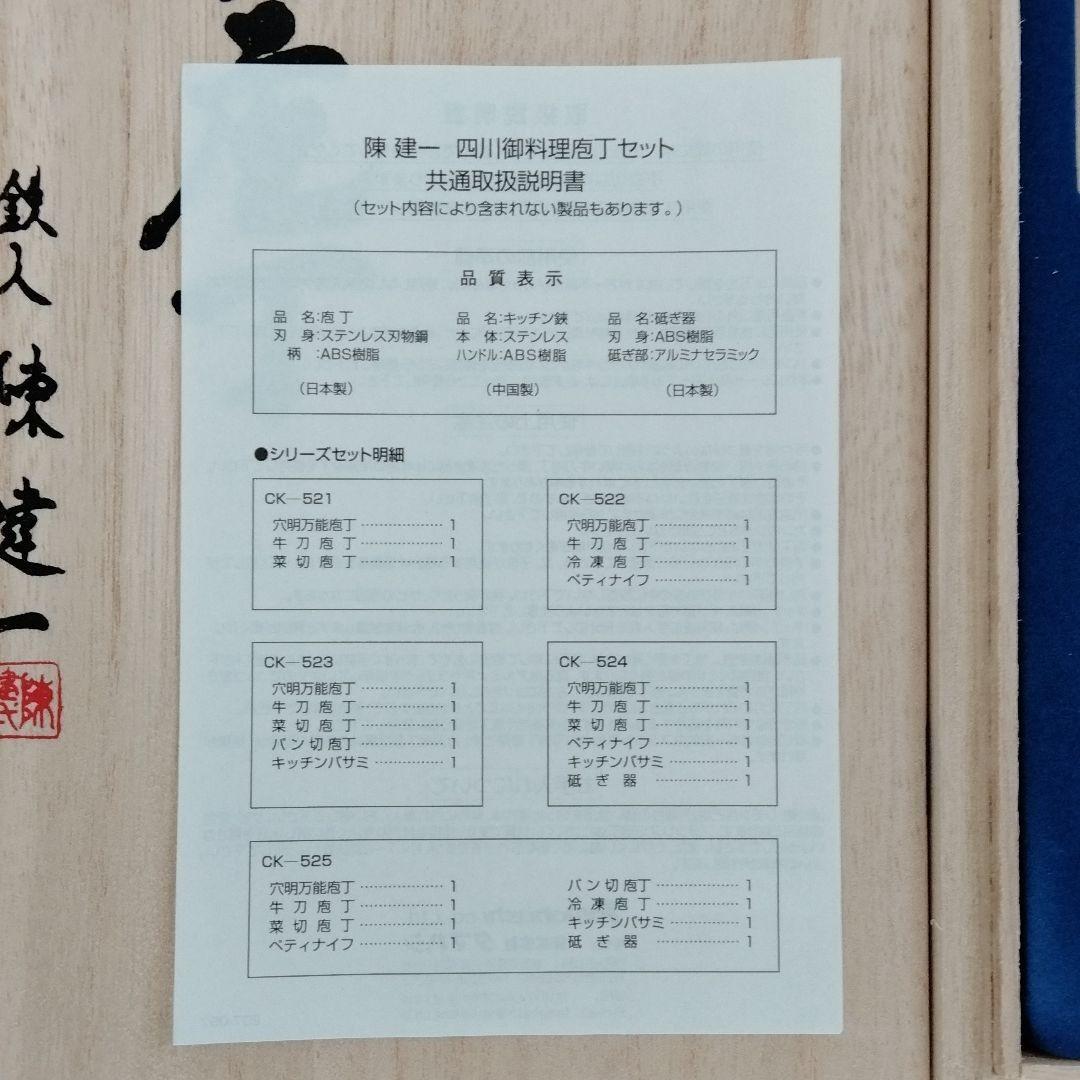 鉄人 陳建一
陳 建一 四川御料理庖丁セット
共通取扱説明書
(セット内容により含まれない製品もあります。)
品質表示
品 名:庖丁
刃 身:ステンレス刃物鋼
柄 :ABS樹脂
(日本製)
品 名:キッチン鋏
本 体:ステンレス
ハンドル:ABS樹脂
(中国製)
品 名:砥ぎ器
刃 身:ABS樹脂
砥ぎ部:アルミナセラミック
(日本製)
●シリーズセット明細
CK―521
穴明万能庖丁………………1
牛刀庖丁………………1
菜切庖丁………………1
CK―522
穴明万能庖丁………………1
牛刀庖丁………………1
冷凍庖丁………………1
ペティナイフ………………1
CK―523
穴明万能庖丁………………1
牛刀庖丁………………1
菜切庖丁………………1
パン切庖丁………………1
キッチンバサミ………………1
CK―524
穴明万能庖丁………………1
牛刀庖丁………………1
菜切庖丁………………1
ペティナイフ………………1
キッチンバサミ………………1
砥ぎ器………………1
CK―525
穴明万能庖丁………………1
牛刀庖丁………………1
菜切庖丁………………1
ペティナイフ………………1
パン切庖丁………………1
冷凍庖丁………………1
キッチンバサミ………………1
砥ぎ器………………1